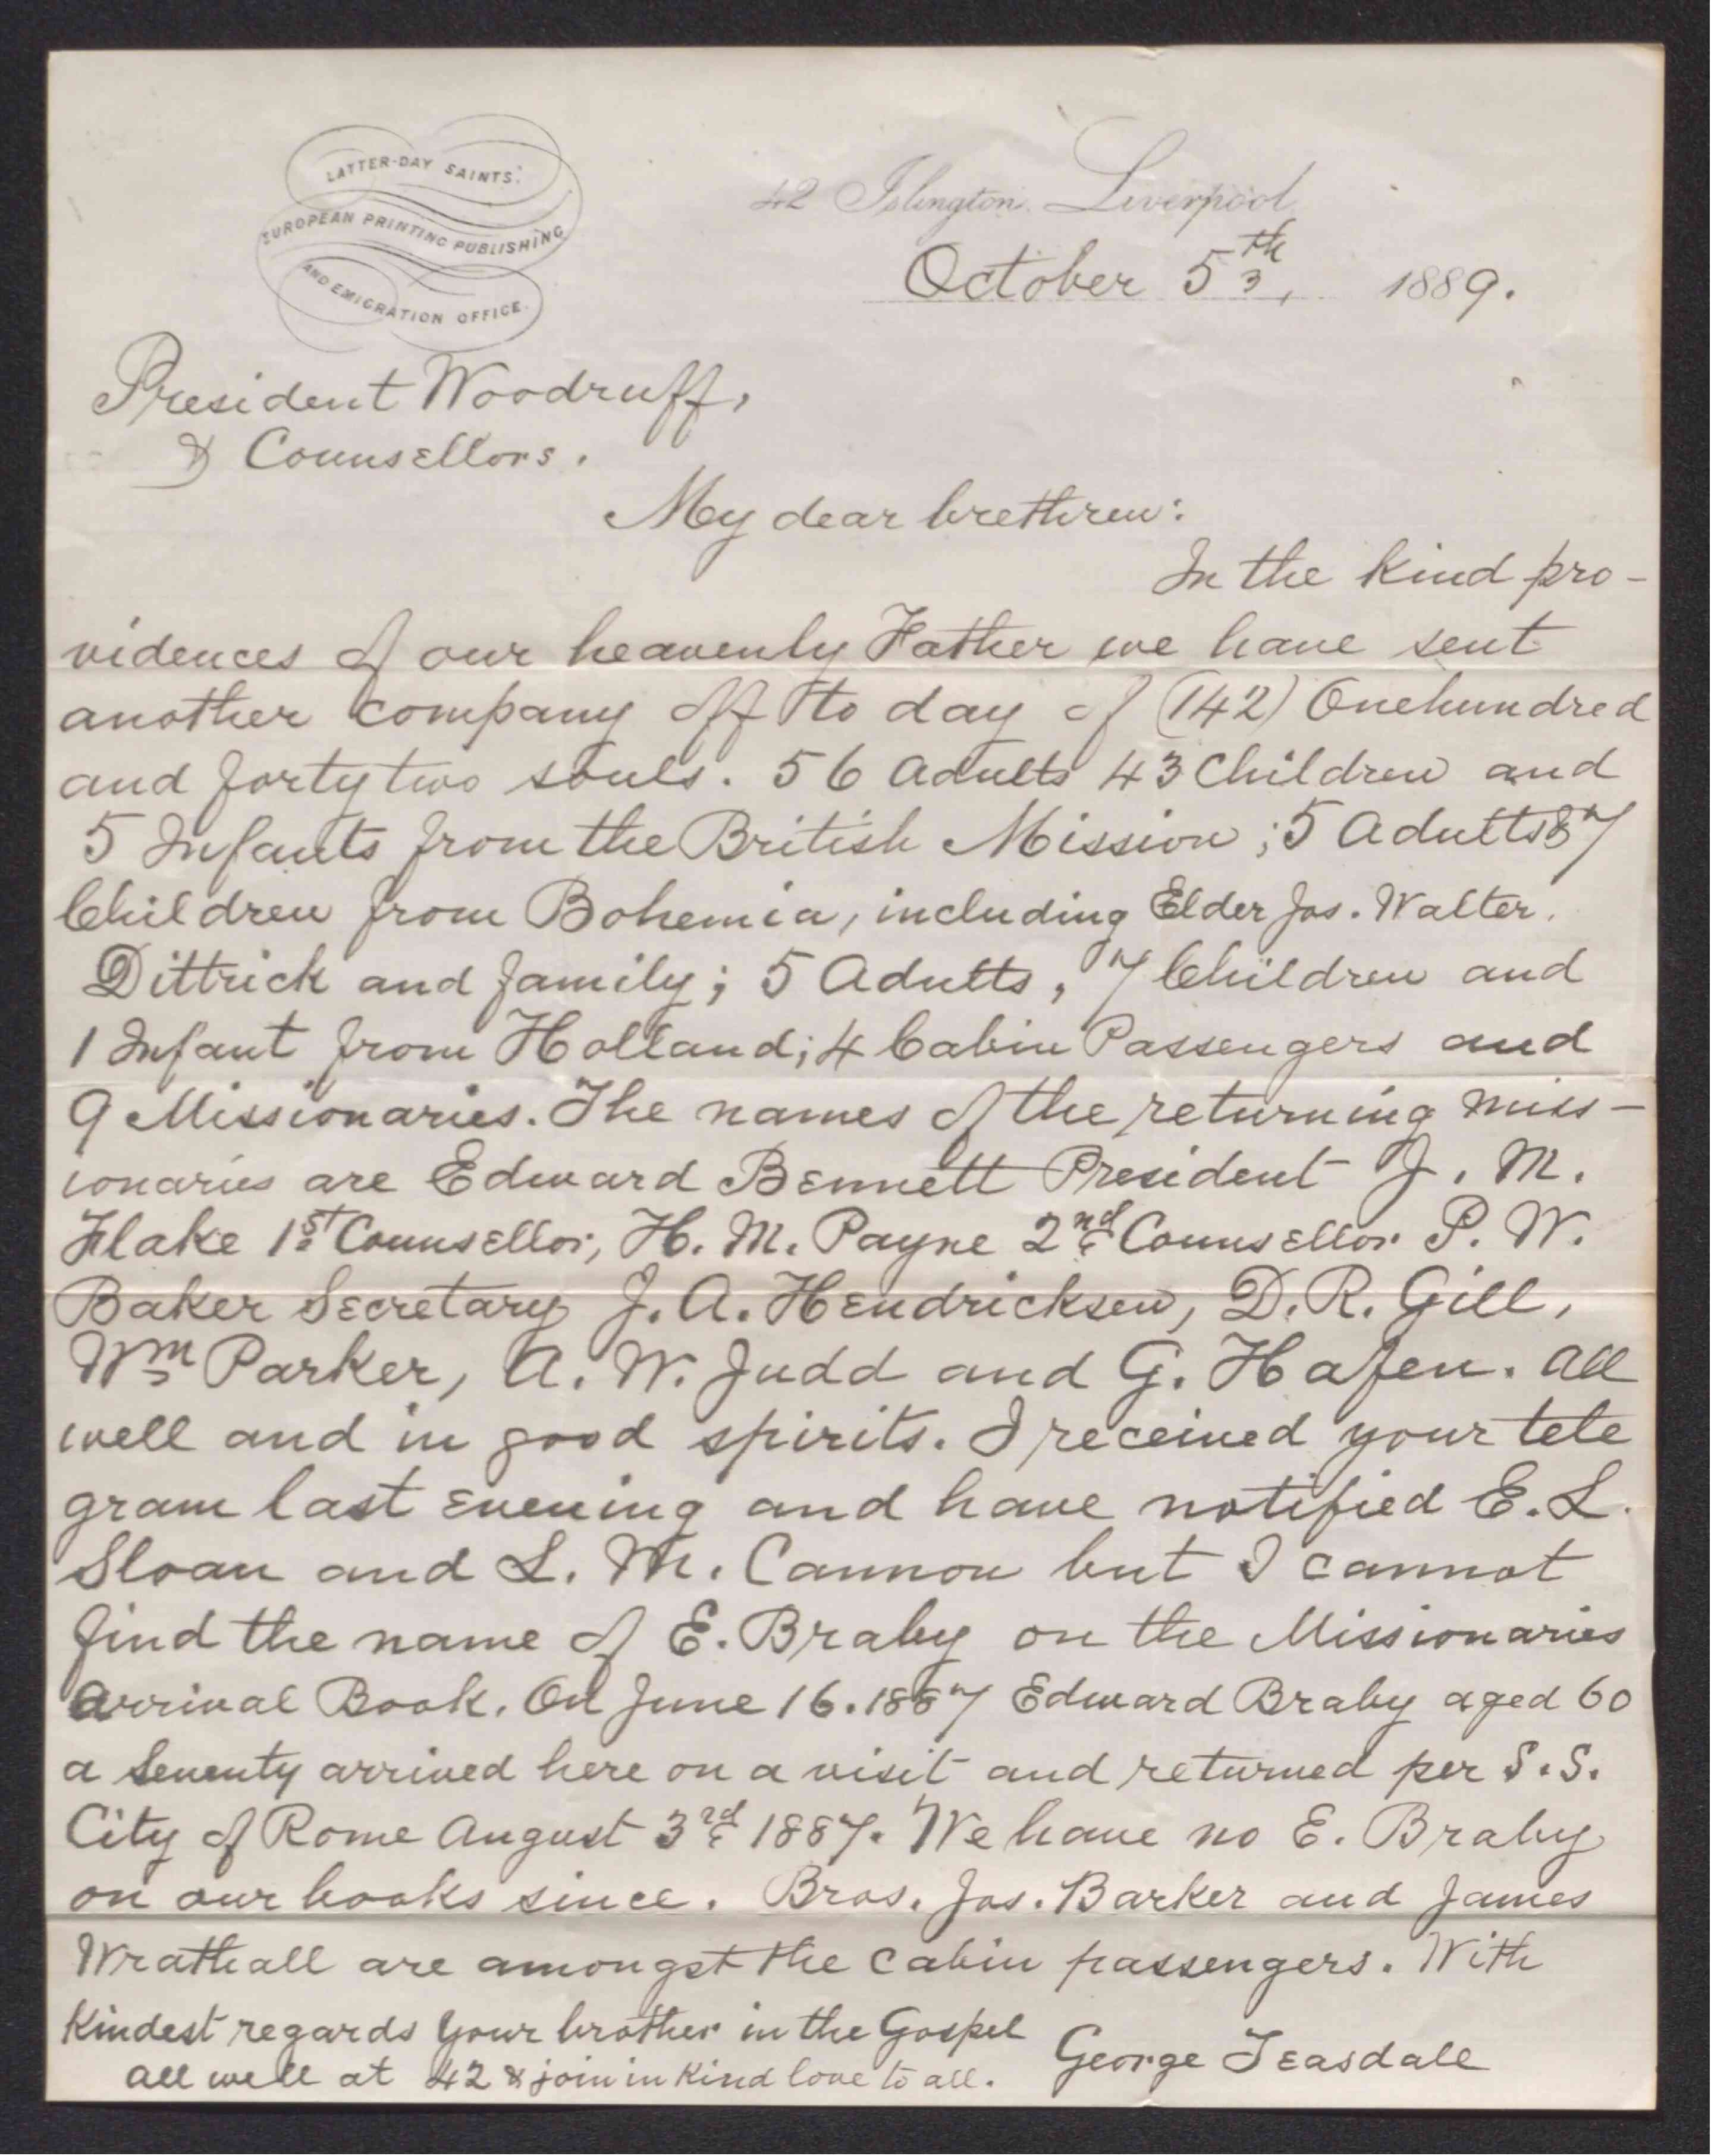 LATTER-DAY SAINTS'
EUROPEAN PRINTING PUBLISHING
AND EMIGRATION OFFICE.
42 Islington. Liverpool
October 5th, 1889.
President Woodruff,
& Counsellors.
My dear brethren:
In the kind pro-
vidences of our heavenly Father we have sent
another company off to day of (142) Onehundred
and forty two souls. 56 Adults 43 Children and
5 Infants from the British Mission; 5 Adults & 7
Children from Bohemia, including Elder Jos. Walter.
Dittrick and family; 5 Adults, 7 Children and
1 Infant from Holland; 4 Cabin Passengers and
9 Missionaries. The names of the returning miss-
ionaries are Edward Bennett President J. M.
Flake 1st Counsellor, H. M. Payne 2nd Counsellor P. W.
Baker Secretary J. A. Hendricksen, D. R. Gill,
Wm Parker, A. W. Judd and G. Hafen. All
well and in good spirits. I received your tele
gram last evening and have notified E. L.
Sloan and L. M. Cannon but I cannot
find the name of E. Braby on the Missionaries
Arrival Book. On June 16. 1887 Edward Braby aged 60
a Seventy arrived here on a visit and returned per S.S.
City of Rome August 3rd 1887. We have no E. Braby
on our books since. Bros. Jos. Barker and James
Wrathall are amongst the cabin passengers. With
Kindest regards Your brother in the Gospel
George Teasdale
All well at 42 & join in Kind love to all.